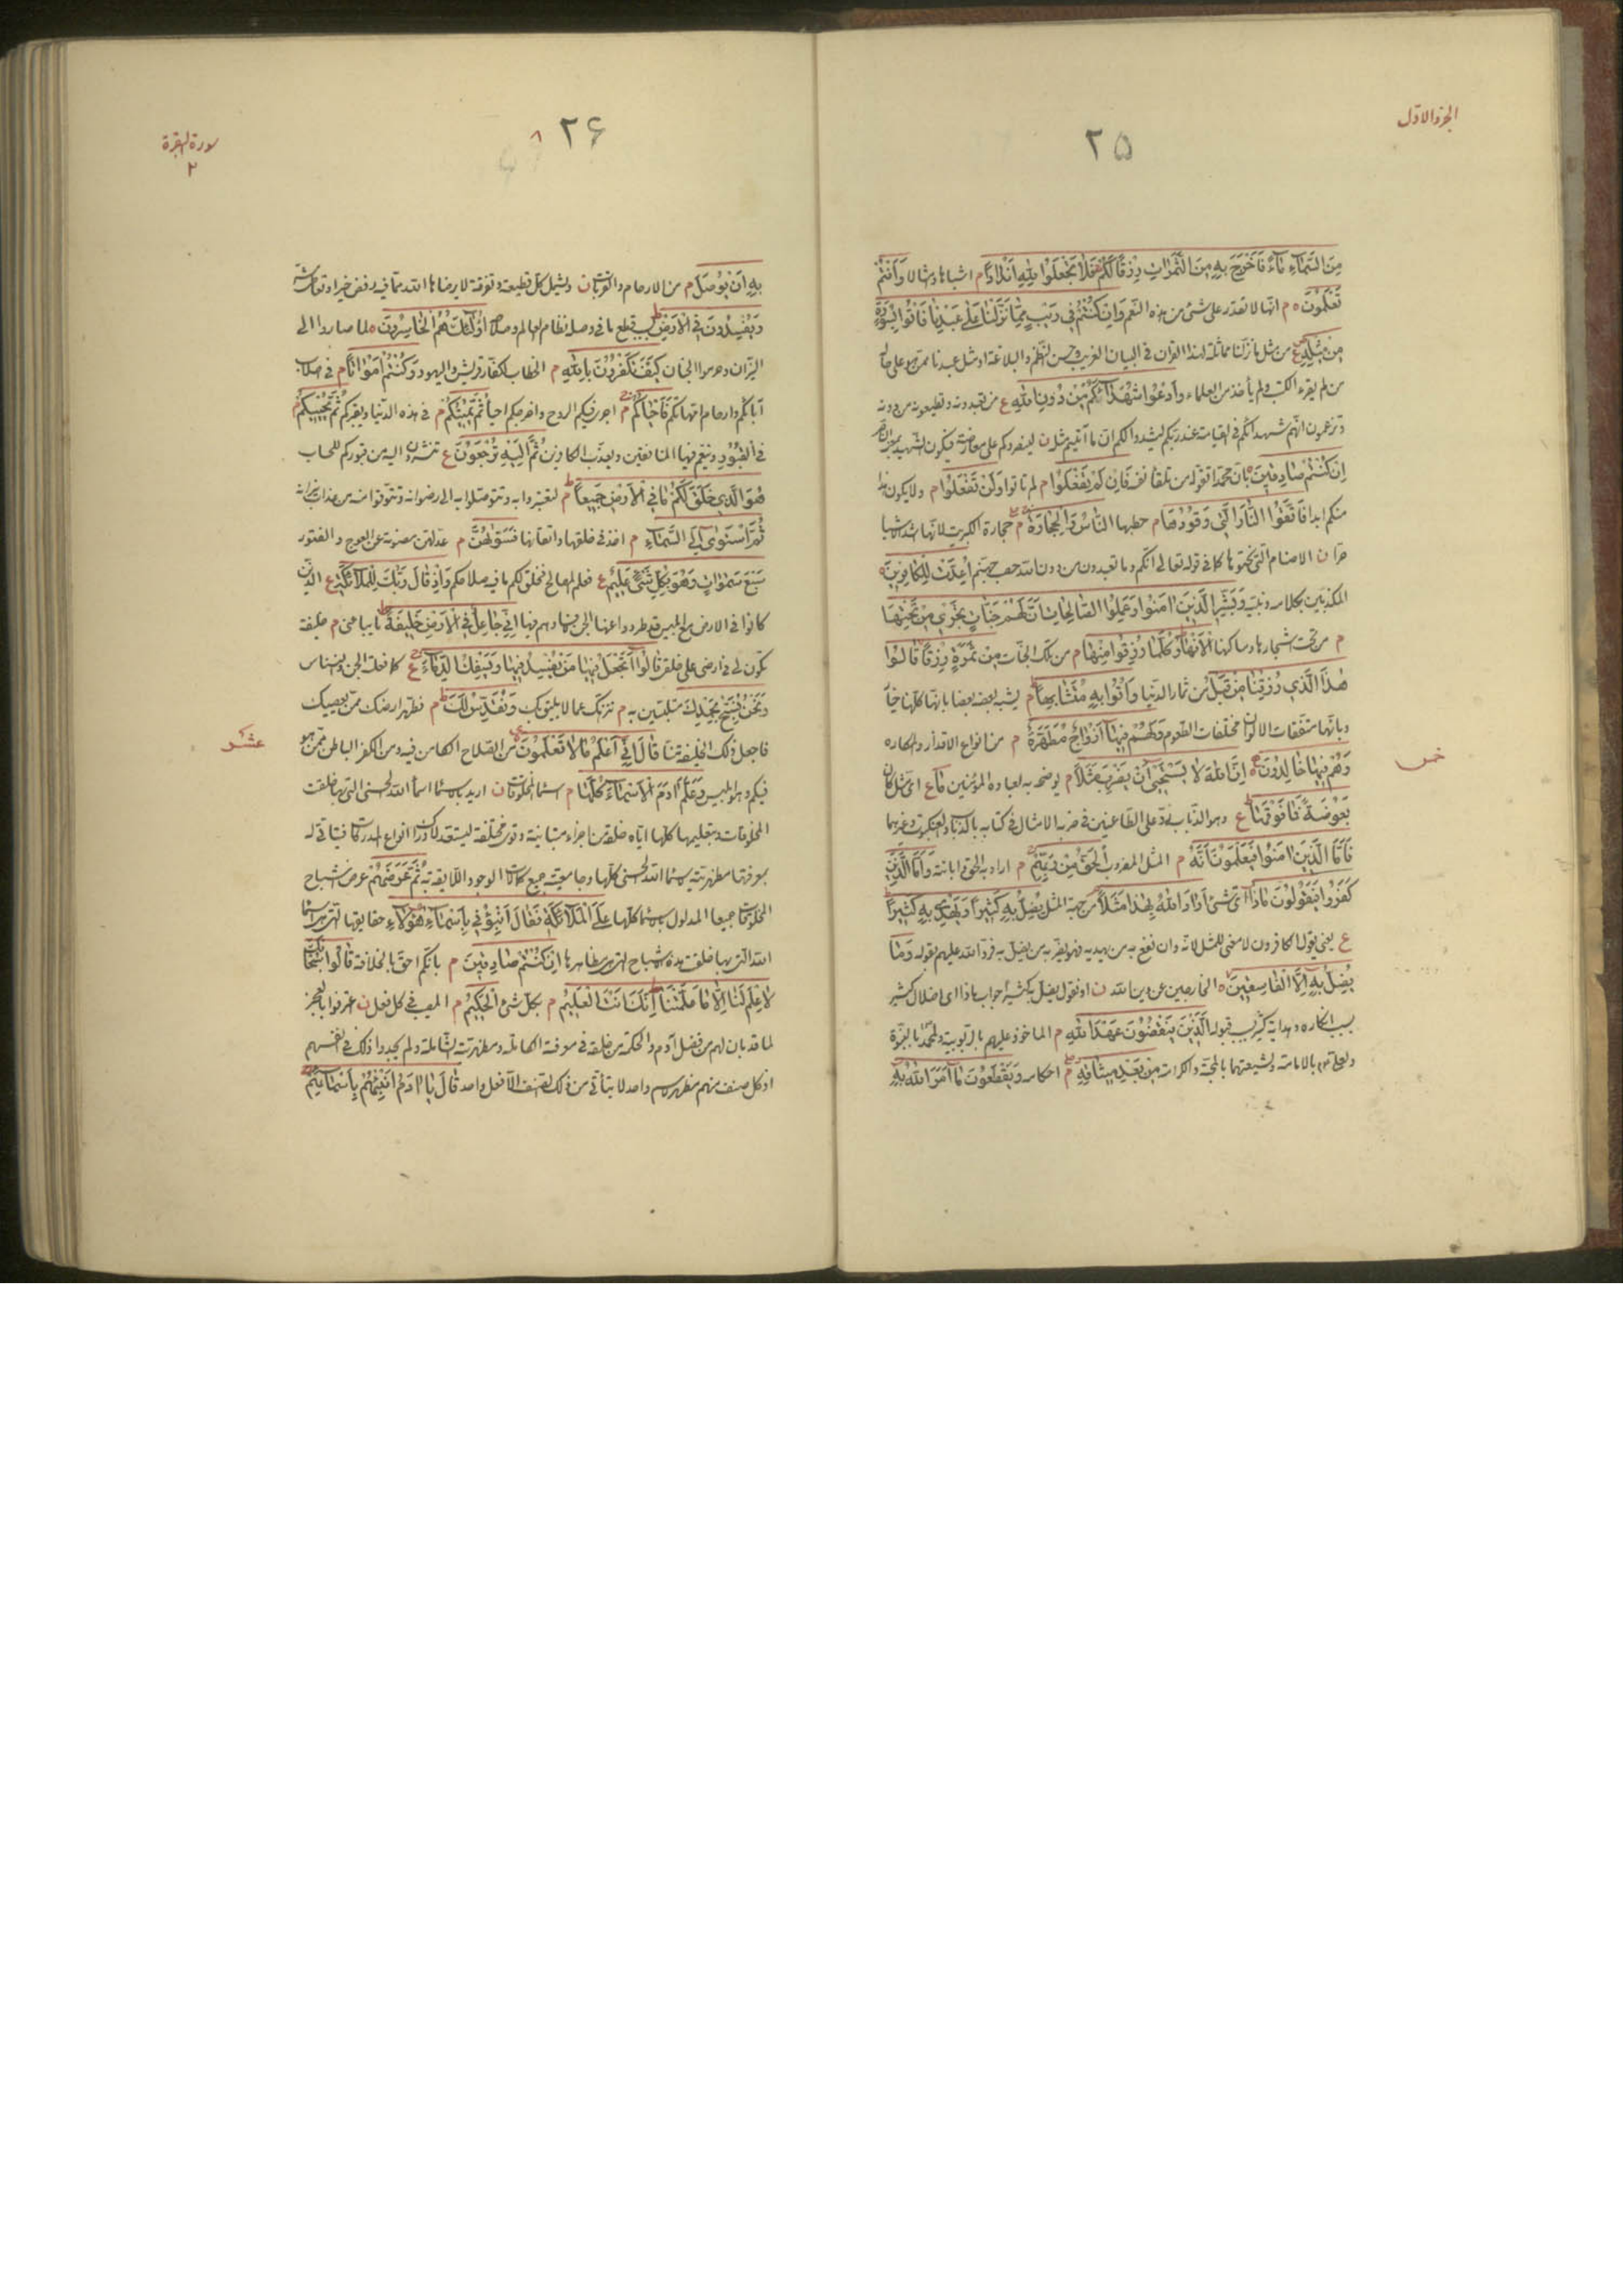 الجزء الاول
۲۵
مِنَ السَّمَاءِ مَاءً فَاَخْرَجَ بِهِ مِنَ الثَّمَرَاتِ رِزْقًا لَكُمْ فَلَا تَجْعَلُوا لِلّٰهِ اَنْدَادًا م اشباها و مثالا وَاَنْتُمْ
تَعْلَمُونَ ه م انها لا تقدر على شئ من هذه النعم وَاِنْ كُنْتُمْ فِي رَيْبٍ مِمَّا نَزَّلْنَا عَلٰى عَبْدِنَا فَاْتُوا بِسُورَةٍ
مِنْ مِثْلِهِ ع من مثل ما نزلنا مماثلة لهذا القران فى البيان الغريب و حسن النظم و البلاغة او مثل عبدنا ممن هو على حاله
من لم يقرء الكتب و لم يأخذ من العلماء وَادْعُوا شُهَدَاءَكُمْ مِنْ دُونِ اللهِ ع من تعبدونه و تطيعونه من دونه
و تزعمون انهم شهدائكم فى القيامة عند ربكم ليشهدوا لكم ان ما آتيتم مثل ن لينصروكم على معارضته فيكون الشهيد بمعنى الناصر
اِنْ كُنْتُمْ صَادِقِينَ بان محمدا تقوله من تلقاء نفسه فَاِنْ لَمْ تَفْعَلُوا م لم تاتوا وَلَنْ تَفْعَلُوا م و لا يكون هذا
منكم ابدا فَاتَّقُوا النَّارَ الَّتِي وَقُودُهَا م حطبها النَّاسُ وَالْحِجَارَةُ م حجارة الكبريت لانها اشد الاشياء
حرا ن الاصنام التى نحتوها كما فى قوله تعالى انكم و ما تعبدون من دون الله حصب جهنم اُعِدَّتْ لِلْكَافِرِينَ ه
المكذبين بكلامه و نبيه وَبَشِّرِ الَّذِينَ اٰمَنُوا وَعَمِلُوا الصَّالِحَاتِ اَنَّ لَهُمْ جَنَّاتٍ تَجْرِي مِنْ تَحْتِهَا
م من تحت اشجارها و مساكنها الْاَنْهَارُ كُلَّمَا رُزِقُوا مِنْهَا م من تلك الجنات مِنْ ثَمَرَةٍ رِزْقًا قَالُوا
هٰذَا الَّذِي رُزِقْنَا مِنْ قَبْلُ من ثمار الدنيا وَاُتُوا بِهِ مُتَشَابِهًا م يشبه بعضه بعضا بانها كلها خيار
و بانها متفقات الالوان مختلفات الطعوم وَلَهُمْ فِيهَا اَزْوَاجٌ مُطَهَّرَةٌ م من انواع الاقذار و المكاره
وَهُمْ فِيهَا خَالِدُونَ ه اِنَّ اللهَ لَا يَسْتَحْيِي اَنْ يَضْرِبَ مَثَلًا م يوضحه به لعباده المؤمنين مَا ع اى مثل كان
خمس
بَعُوضَةً فَمَا فَوْقَهَا ع و هو الذباب رد على الطاعنين فى ضربه الامثال فى كتابه بالذباب و العنكبوت و غيرهما
فَاَمَّا الَّذِينَ اٰمَنُوا فَيَعْلَمُونَ اَنَّهُ م المثل المضروب الْحَقُّ مِنْ رَبِّهِمْ م اراد به الحق و ابانته وَاَمَّا الَّذِينَ
كَفَرُوا فَيَقُولُونَ مَاذَا اى شئ اَرَادَ اللهُ بِهٰذَا مَثَلًا من جهة المثل يُضِلُّ بِهِ كَثِيرًا وَيَهْدِي بِهِ كَثِيرًا
ع يعنى يقول الكافرون لا معنى للمثل لانه و ان نفع به من يهديه فهو يضر به من يضل به فرد الله عليهم بقوله وَمَا
يُضِلُّ بِهِ اِلَّا الْفَاسِقِينَ ه الخارجين عن دين الله ن او نقول يضل به كثيرا جواب ماذا اى اضلال كثير
بسبب انكاره و هداية كثير بسبب قبوله الَّذِينَ يَنْقُضُونَ عَهْدَ اللهِ م الماخوذ عليهم بالربوبية و لمحمد بالنبوة
و لعلى بالامامة و لشيعتهما بالمحبة و الكرامة مِنْ بَعْدِ مِيثَاقِهِ م احكامه وَيَقْطَعُونَ مَا اَمَرَ اللهُ بِهِ
سورة البقرة
۲
۲۶
۸
بِهِ اَنْ يُوصَلَ م من الارحام و القرابات ن و يشمل كل قطيعة و تفرقة لا يرضاها الله
وَيُفْسِدُونَ فِي الْاَرْضِ بسبب قطع ما فى وصله نظام العالم و صلاحه اُولٰئِكَ هُمُ الْخَاسِرُونَ ه لما صاروا الى
النيران و حرموا الجنان كَيْفَ تَكْفُرُونَ بِاللهِ م الخطاب لكفار قريش و اليهود وَكُنْتُمْ اَمْوَاتًا م فى اصلاب
آبائكم و ارحام امهاتكم فَاَحْيَاكُمْ م اجرى فيكم الروح و اخرجكم احياء ثُمَّ يُمِيتُكُمْ م فى هذه الدنيا و يقبركم ثُمَّ يُحْيِيكُمْ م
فى القبور و ينعم فيها المنافقين و يعذب الكافرين ثُمَّ اِلَيْهِ تُرْجَعُونَ ع تنشرون اليه من قبوركم للحساب
هُوَ الَّذِي خَلَقَ لَكُمْ مَا فِي الْاَرْضِ جَمِيعًا م لتعتبروا به و تتوصلوا به الى رضوانه و تتوقوا به من عذاب نيرانه
ثُمَّ اسْتَوٰى اِلَى السَّمَاءِ م اخذ فى خلقها و اتقانها فَسَوَّاهُنَّ م عدلهن مصونة عن العوج و الفتور
سَبْعَ سَمٰوَاتٍ وَهُوَ بِكُلِّ شَيْءٍ عَلِيمٌ ع فلعلمه المصالح خلق لكم ما فيه صلاحكم وَاِذْ قَالَ رَبُّكَ لِلْمَلَائِكَةِ ع الذين
كانوا فى الارض مع ابليس و قد طردوا عنها الجن اِنِّي جَاعِلٌ فِي الْاَرْضِ خَلِيفَةً نايبا عنى م خليفة
تكون لى فى ارضى على خلقى قَالُوا اَتَجْعَلُ فِيهَا مَنْ يُفْسِدُ فِيهَا وَيَسْفِكُ الدِّمَاءَ ع كما فعلت الجن و النسناس
وَنَحْنُ نُسَبِّحُ بِحَمْدِكَ متلبسين به م ننزهك عما لا يليق بك وَنُقَدِّسُ لَكَ م نطهر ارضك ممن يعصيك
فاجعل ذلك الخليفة منا قَالَ اِنِّي اَعْلَمُ مَا لَا تَعْلَمُونَ من الصلاح الكامن فيه و من الكفر الباطن ممن هو
عشر
فيكم و هو ابليس وَعَلَّمَ اٰدَمَ الْاَسْمَاءَ كُلَّهَا م اسماء المخلوقات ن اريد بالاسماء اسماء الله الحسنى التى بها خلقت
المخلوقات و بتعليمها كلها اياه خلقه من اجزاء متباينة و قوى مختلفة ليستعد لادراك انواع المدركات
بمعرفتها مظهريته لاسماء الله الحسنى كلها و جامعيته جميع كمالات الوجود اللايقة به ثُمَّ عَرَضَهُمْ عرض اشباح
المخلوقات جميعا المدلول بالاسماء كلها عَلَى الْمَلَائِكَةِ فَقَالَ اَنْبِئُونِي بِاَسْمَاءِ هٰؤُلَاءِ حقايقها التى هى اسماء
الله التى بها خلقت هذه الاشباح التى هى مظاهرها اِنْ كُنْتُمْ صَادِقِينَ م بانكم احق بالخلافة قَالُوا سُبْحَانَكَ
لَا عِلْمَ لَنَا اِلَّا مَا عَلَّمْتَنَا اِنَّكَ اَنْتَ الْعَلِيمُ م بكل شئ الْحَكِيمُ م المصيب فى كل فعل ن عرفوا بالعجز
لما قد بان لهم من فضل آدم و الحكمة من خلقه فى معرفته الكاملة و مظهريته الشاملة و لم يجدوا ذلك فى انفسهم
اذ كل صنف منهم مظهر اسم واحد لا يتأتى من ذلك الصنف الا فعل واحد قَالَ يَا اٰدَمُ اَنْبِئْهُمْ بِاَسْمَائِهِمْ